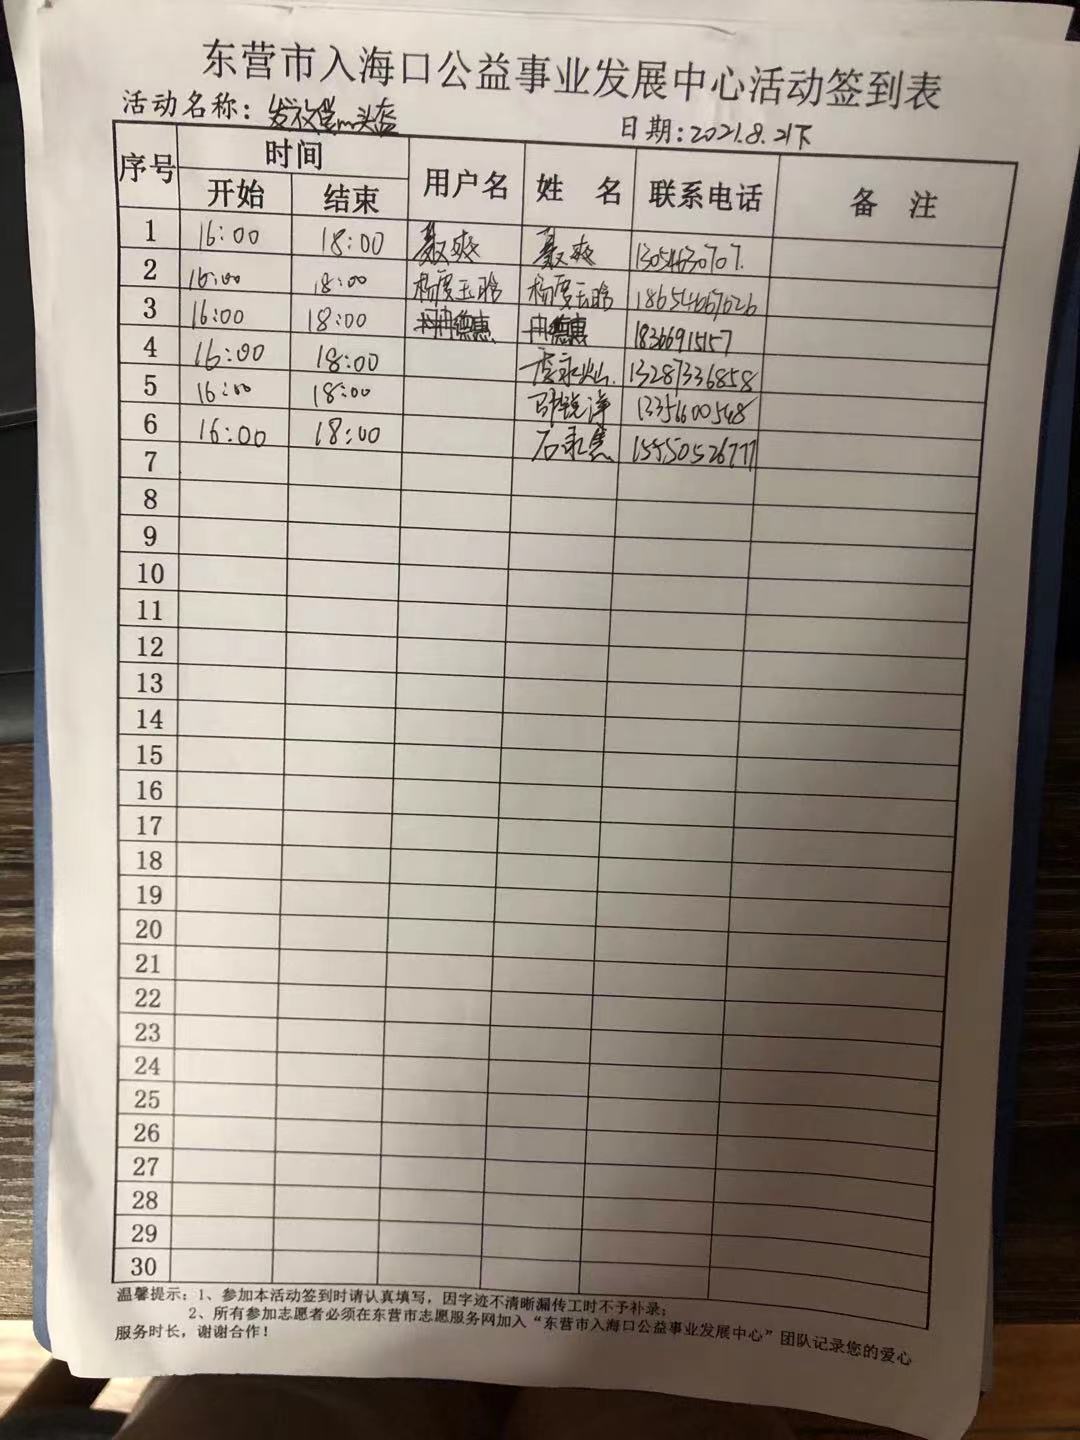 东营市入海口公益事业发展中心活动签到表
活动名称: 头盔
日期: 2021.8.21下
序号 时间 用户名 姓 名 联系电话 备 注
开始 结束
1 16:00 18:00 聂爽 聂爽 13054630707.
2 16:00 18:00 杨度玉晗 杨度玉晗 18654667026
3 16:00 18:00 冉德惠 冉德惠 18366915157
4 16:00 18:00 13287336858
5 16:00 18:00 13356600548
6 16:00 18:00 15550526777
7
8
9
10
11
12
13
14
15
16
17
18
19
20
21
22
23
24
25
26
27
28
29
30
温馨提示: 1、参加本活动签到时请认真填写, 因字迹不清晰漏传工时不予补录;
2、所有参加志愿者必须在东营市志愿服务网加入“东营市入海口公益事业发展中心”团队记录您的爱心
服务时长, 谢谢合作!